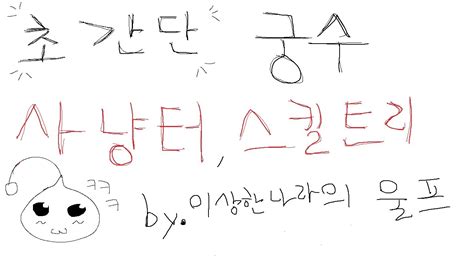 초간단 궁수
사냥터, 스킬트리
ㅋㅋ
ㅋ
by. 이상한나라의 울프